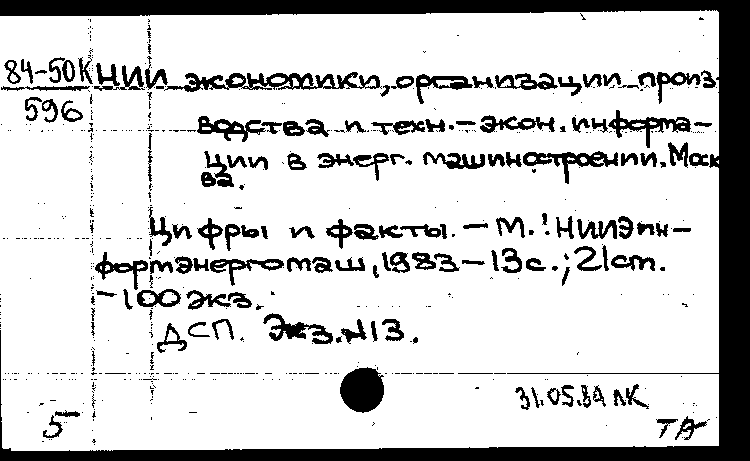 84-50К НИИ экономики, организации произ-
596
водства и техн.-экон. информа-
ции в энерг. машиностроении. Моск
ва.
Цифры и факты. - М.: НИИЭин-
формэнергомаш, 1983 - 13 с.; 21 cm.
- 100 экз.
ДСП. Экз. N13.
31.05.84 ЛК
5